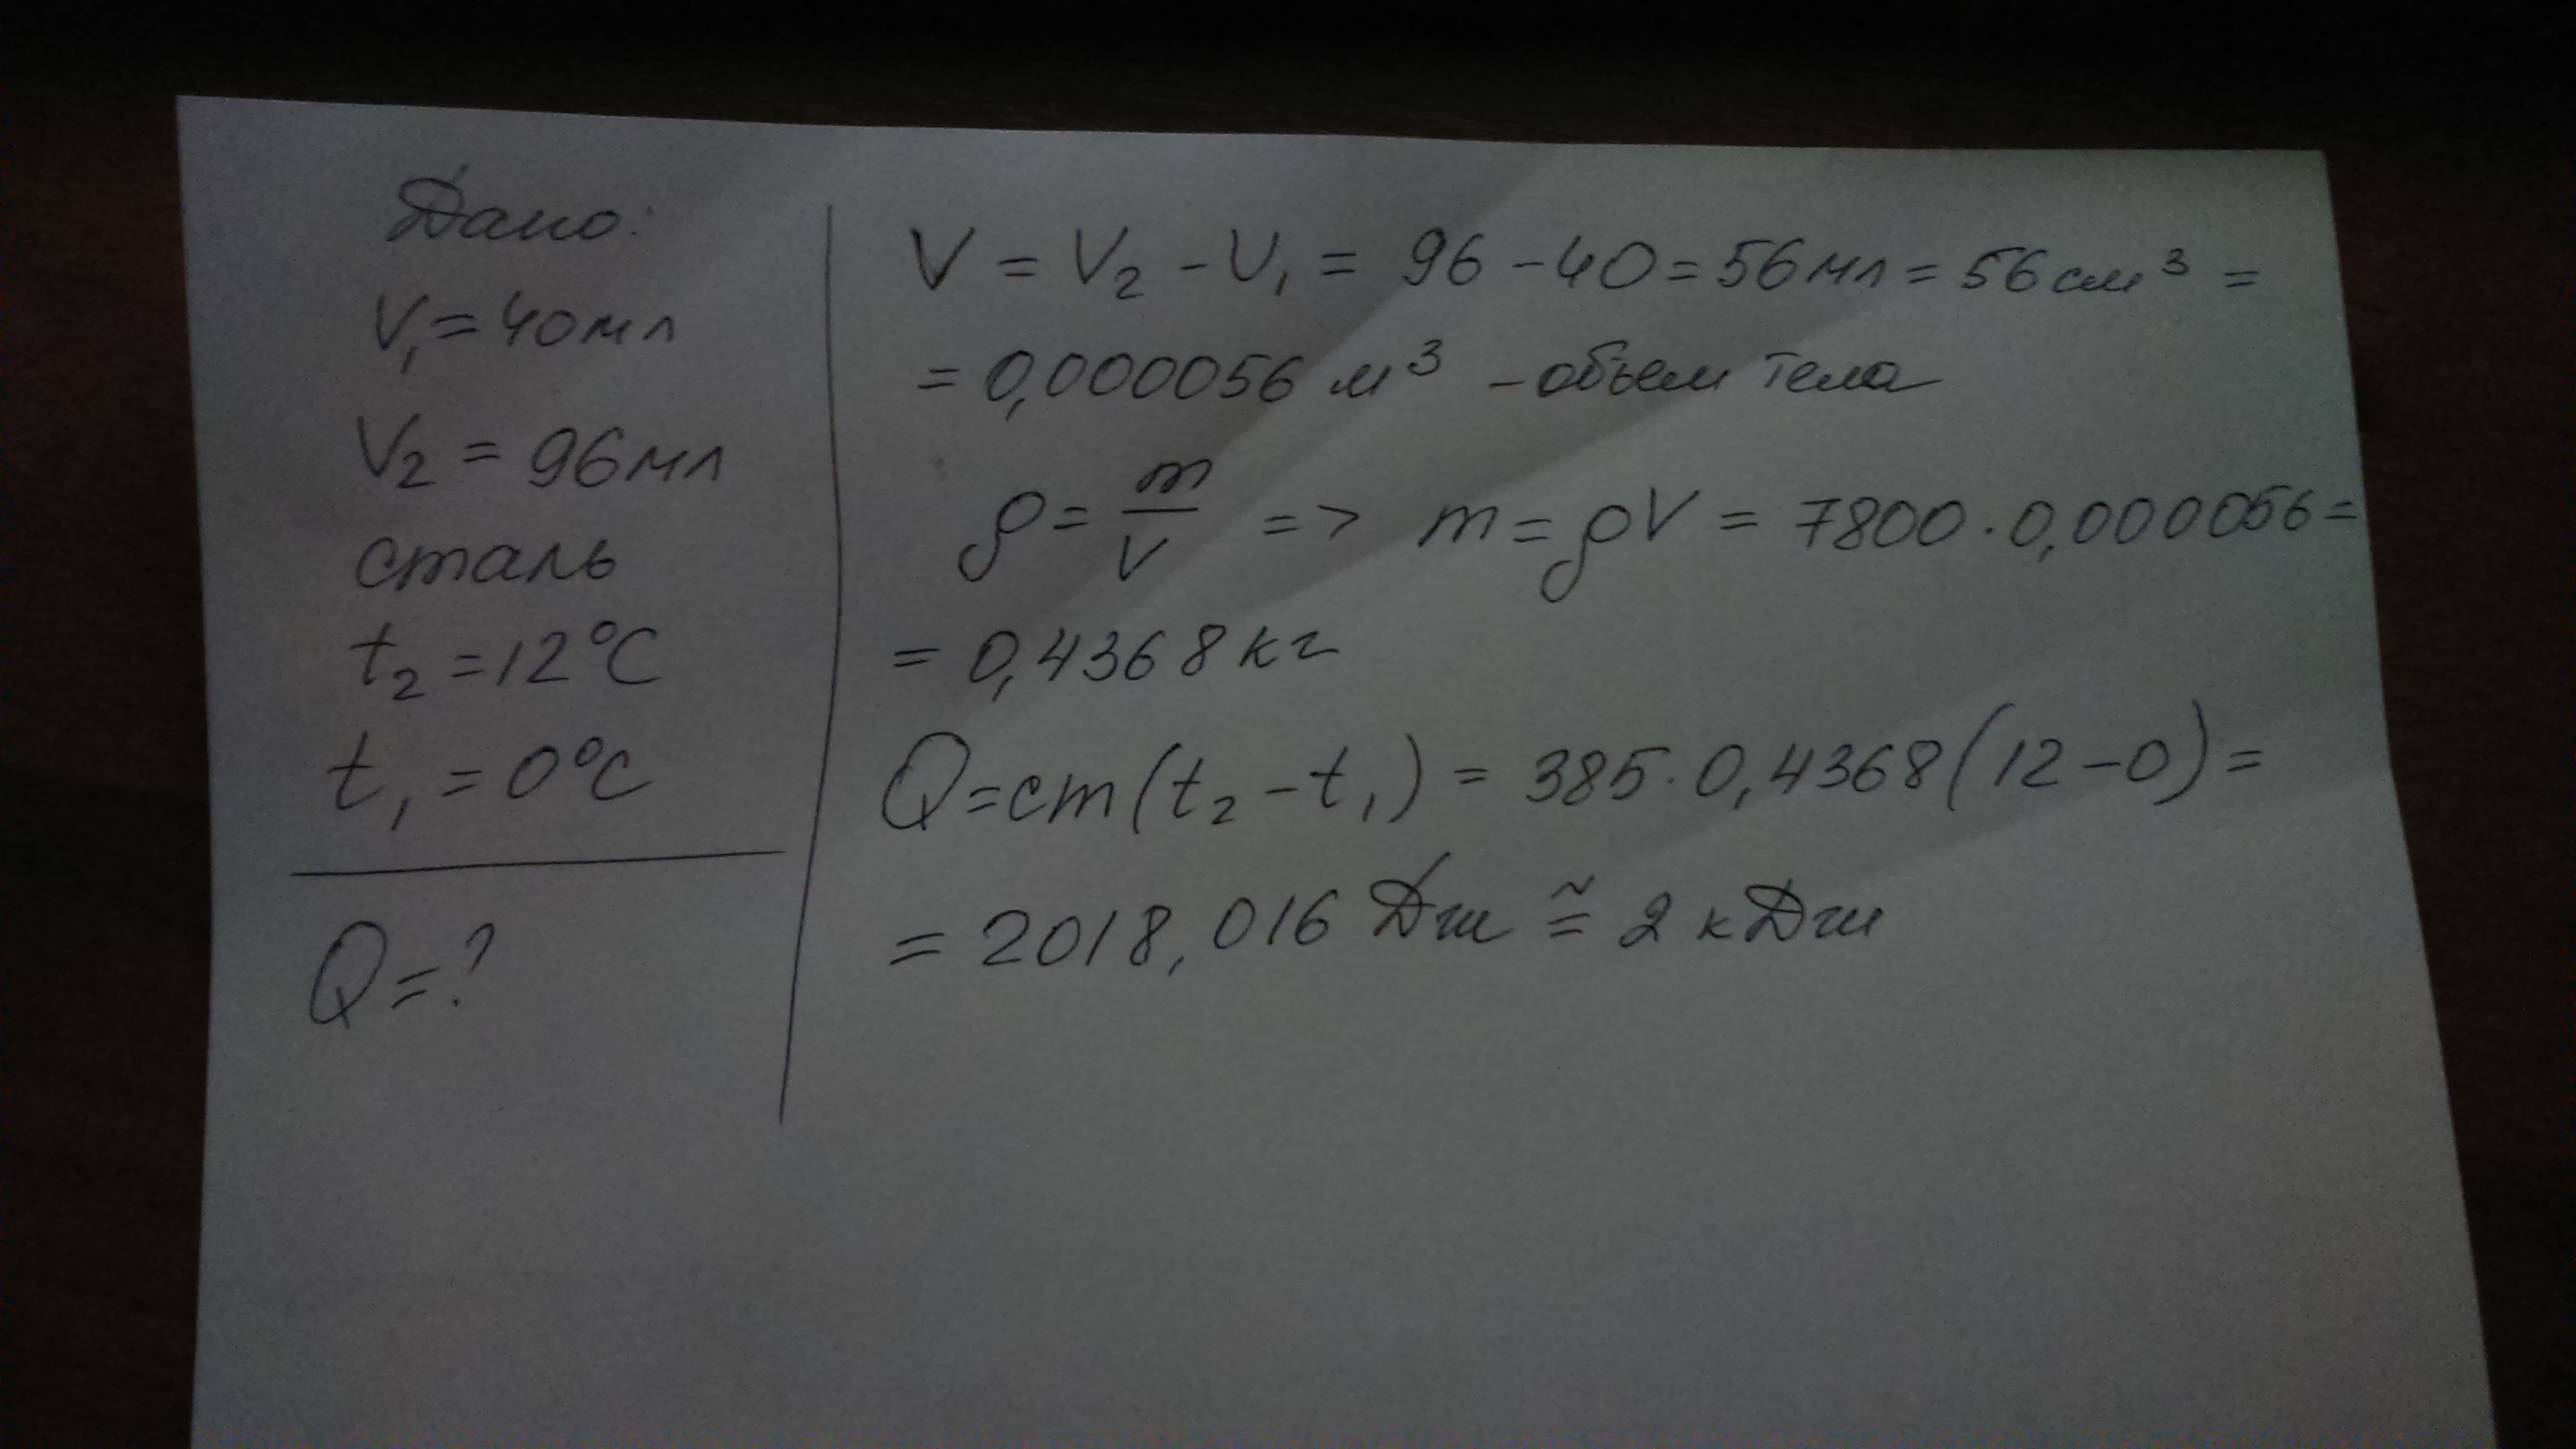 Дано:
V₁ = 40 мл
V₂ = 96 мл
сталь
t₂ = 12°C
t₁ = 0°C
Q = ?
V = V₂ - V₁ = 96 - 40 = 56 мл = 56 см³ =
= 0,000056 м³ - объем тела
ρ = m/V => m = ρV = 7800 · 0,000056 =
= 0,4368 кг
Q = cm(t₂ - t₁) = 385 · 0,4368 (12 - 0) =
= 2018,016 Дж ≅ 2 кДж